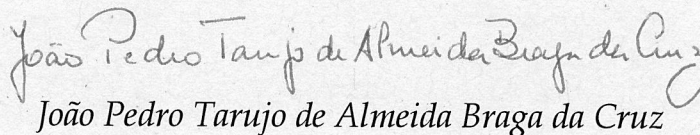 João Pedro Tarujo de Almeida Braga da Cruz
João Pedro Tarujo de Almeida Braga da Cruz